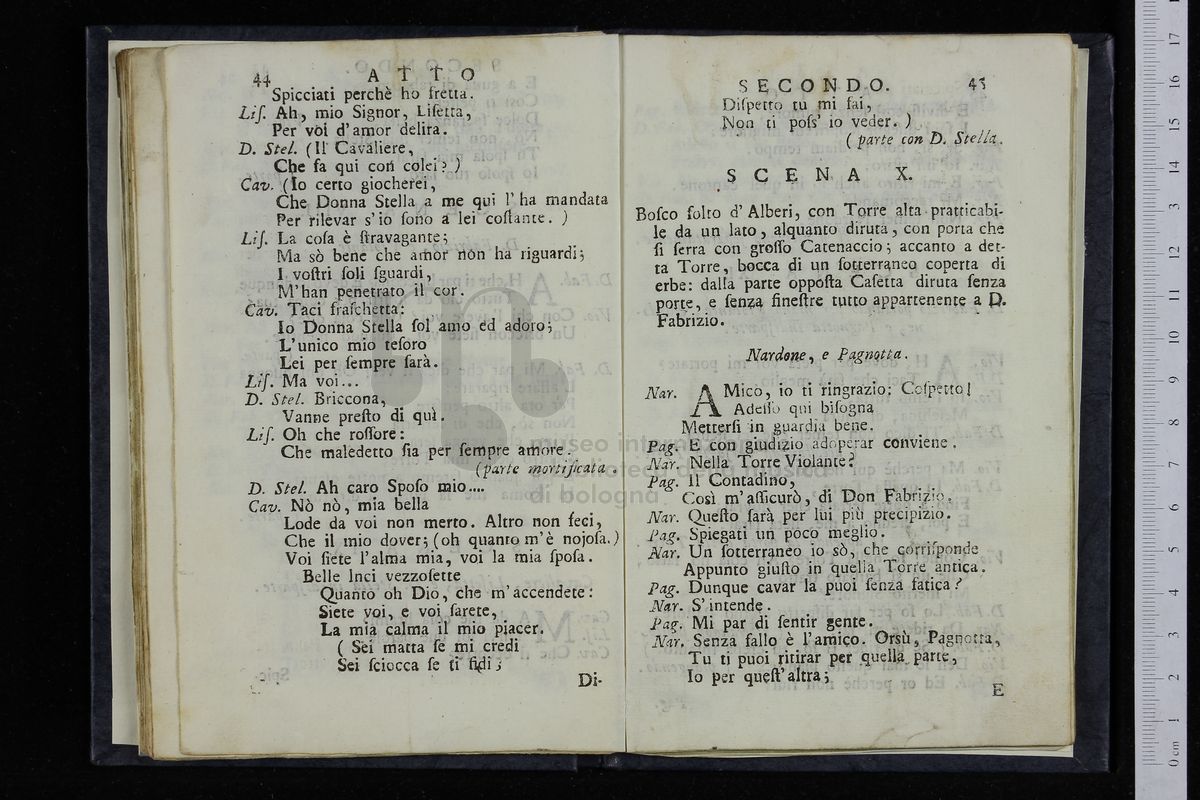 44 ATTO
Spicciati perchè ho fretta.
Liſ. Ah, mio Signor, Liſetta,
Per voi d'amor delira.
D. Stel. (Il Cavaliere,
Che fa qui con colei?)
Cav. (Io certo giocherei,
Che Donna Stella a me qui l'ha mandata
Per rilevar s'io ſono a lei coſtante. )
Liſ. La coſa è ſtravagante;
Ma sò bene che amor non ha riguardi;
I voſtri ſoli ſguardi,
M'han penetrato il cor.
Cav. Taci fraſchetta:
Io Donna Stella ſol amo ed adoro;
L'unico mio teſoro
Lei per ſempre ſarà.
Liſ. Ma voi...
D. Stel. Briccona,
Vanne preſto di quì.
Liſ. Oh che roſſore:
Che maledetto ſia per ſempre amore.
(parte mortificata.
D. Stel. Ah caro Spoſo mio....
Cav. Nò nò, mia bella
Lode da voi non merto. Altro non feci,
Che il mio dover; (oh quanto m'è nojoſa.)
Voi ſiete l'alma mia, voi la mia ſpoſa.
Belle luci vezzoſette
Quanto oh Dio, che m'accendete:
Siete voi, e voi ſarete,
La mia calma il mio piacer.
( Sei matta ſe mi credi
Sei ſciocca ſe ti fidi;
Di-
SECONDO. 45
Diſpetto tu mi fai,
Non ti poſs' io veder. )
( parte con D. Stella.
SCENA X.
Boſco folto d'Alberi, con Torre alta pratticabi-
le da un lato, alquanto diruta, con porta che
ſi ſerra con groſſo Catenaccio; accanto a det-
ta Torre, bocca di un ſotterraneo coperta di
erbe: dalla parte oppoſta Caſetta diruta ſenza
porte, e ſenza fineſtre tutto appartenente a D.
Fabrizio.
Nardone, e Pagnotta.
Nar. AMico, io ti ringrazio: Coſpetto!
Adeſſo qui biſogna
Metterſi in guardia bene.
Pag. E con giudizio adoperar conviene.
Nar. Nella Torre Violante?
Pag. Il Contadino,
Così m'aſſicurò, di Don Fabrizio.
Nar. Queſto ſarà per lui più precipizio.
Pag. Spiegati un poco meglio.
Nar. Un ſotterraneo io sò, che corriſponde
Appunto giuſto in quella Torre antica.
Pag. Dunque cavar la puoi ſenza fatica?
Nar. S'intende.
Pag. Mi par di ſentir gente.
Nar. Senza fallo è l'amico. Orsù, Pagnotta,
Tu ti puoi ritirar per quella parte,
Io per queſt'altra;
E